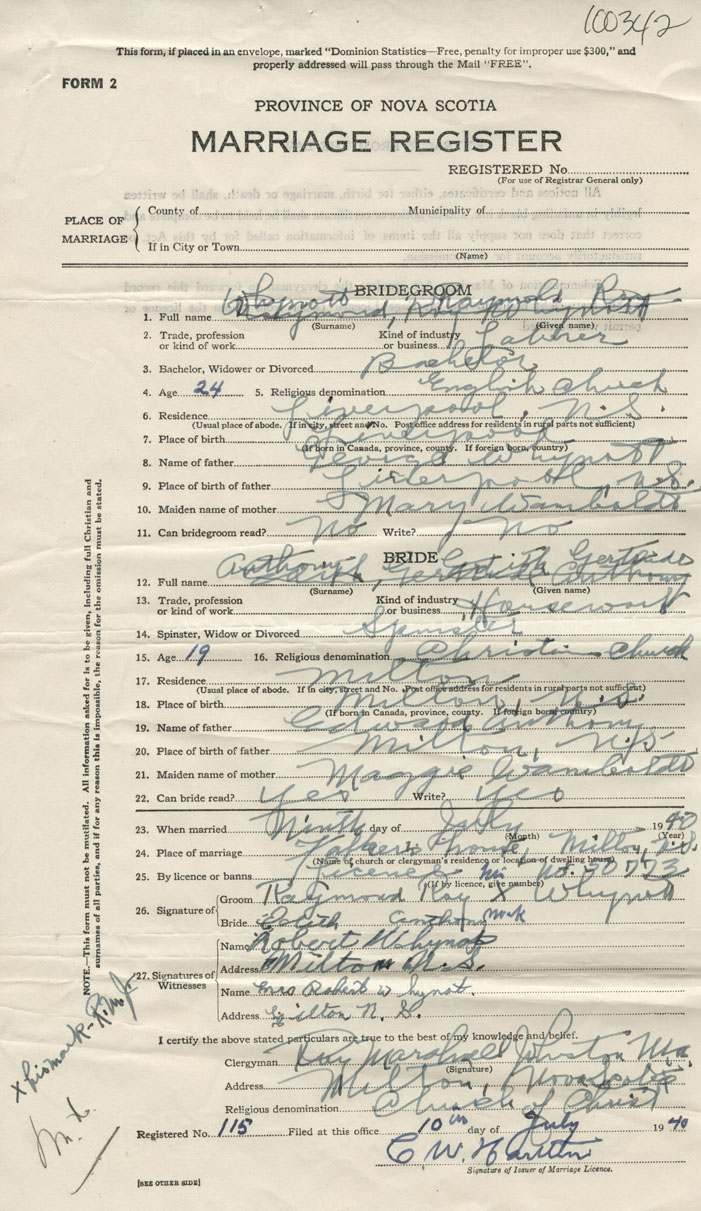 100342
This form, if placed in an envelope, marked "Dominion Statistics—Free, penalty for improper use $300," and
properly addressed will pass through the Mail "FREE".
FORM 2
PROVINCE OF NOVA SCOTIA
MARRIAGE REGISTER
REGISTERED No.
(For use of Registrar General only)
PLACE OF MARRIAGE
County of Municipality of
If in City or Town
(Name)
BRIDEGROOM
1. Full name Whynott Raymond Roy
(Surname) (Given name)
2. Trade, profession or kind of work Kind of industry or business Laborer
3. Bachelor, Widower or Divorced Bachelor
4. Age 24 5. Religious denomination English Church
6. Residence Liverpool, N.S.
(Usual place of abode. If in city, street and No. Post office address for residents in rural parts not sufficient)
7. Place of birth Liverpool
(If born in Canada, province, county. If foreign born, country)
8. Name of father George Whynott
9. Place of birth of father Liverpool, N.S.
10. Maiden name of mother Mary Wamboldt
11. Can bridegroom read? No Write? No
BRIDE
12. Full name Anthony Edith Gertrude
(Surname) (Given name)
13. Trade, profession or kind of work Kind of industry or business Housework
14. Spinster, Widow or Divorced Spinster
15. Age 19 16. Religious denomination Christian Church
17. Residence Milton
(Usual place of abode. If in city, street and No. Post office address for residents in rural parts not sufficient)
18. Place of birth Milton, N.S.
(If born in Canada, province, county. If foreign born, country)
19. Name of father Edward Anthony
20. Place of birth of father Milton, N.S.
21. Maiden name of mother Maggie Wamboldt
22. Can bride read? Yes Write? Yes
23. When married Ninth day of July 1940
(Month) (Year)
24. Place of marriage house, Milton, N.S.
(Name of church or clergyman's residence or location of dwelling house)
25. By licence or banns Licence No. 50773
(If by licence, give number)
26. Signature of
Groom Raymond Roy X Whynott
his
mark
Bride Edith Anthony
27. Signatures of Witnesses
Name Robert Whynot
Address Milton N.S.
Name Mrs Robert Whynot
Address Milton N. S.
I certify the above stated particulars are true to the best of my knowledge and belief.
Clergyman Ray Marshall
(Signature)
Address Milton, Nova Scotia
Religious denomination Church of Christ
Registered No. 115 Filed at this office 10th day of July 1940
C W.
Signature of Issuer of Marriage Licence.
[SEE OTHER SIDE]
NOTE.—This form must not be mutilated. All information asked for is to be given, including full Christian and
surnames of all parties, and if for any reason this is impossible, the reason for the omission must be stated.
x his mark - R.M.J.